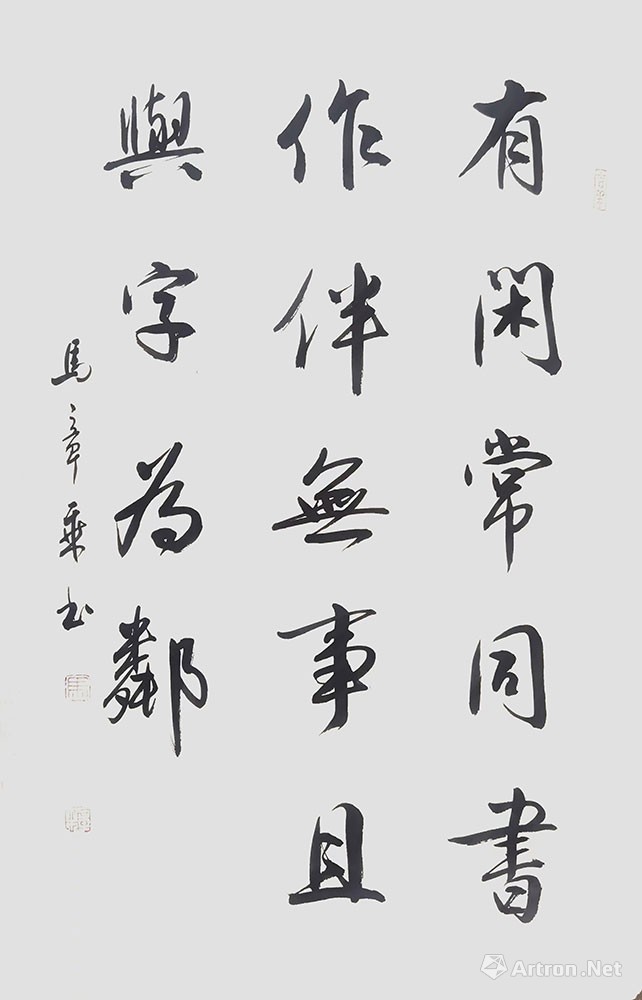 有閑常同書
作伴無事且
與字為鄰
馬章乘书
Artron.Net